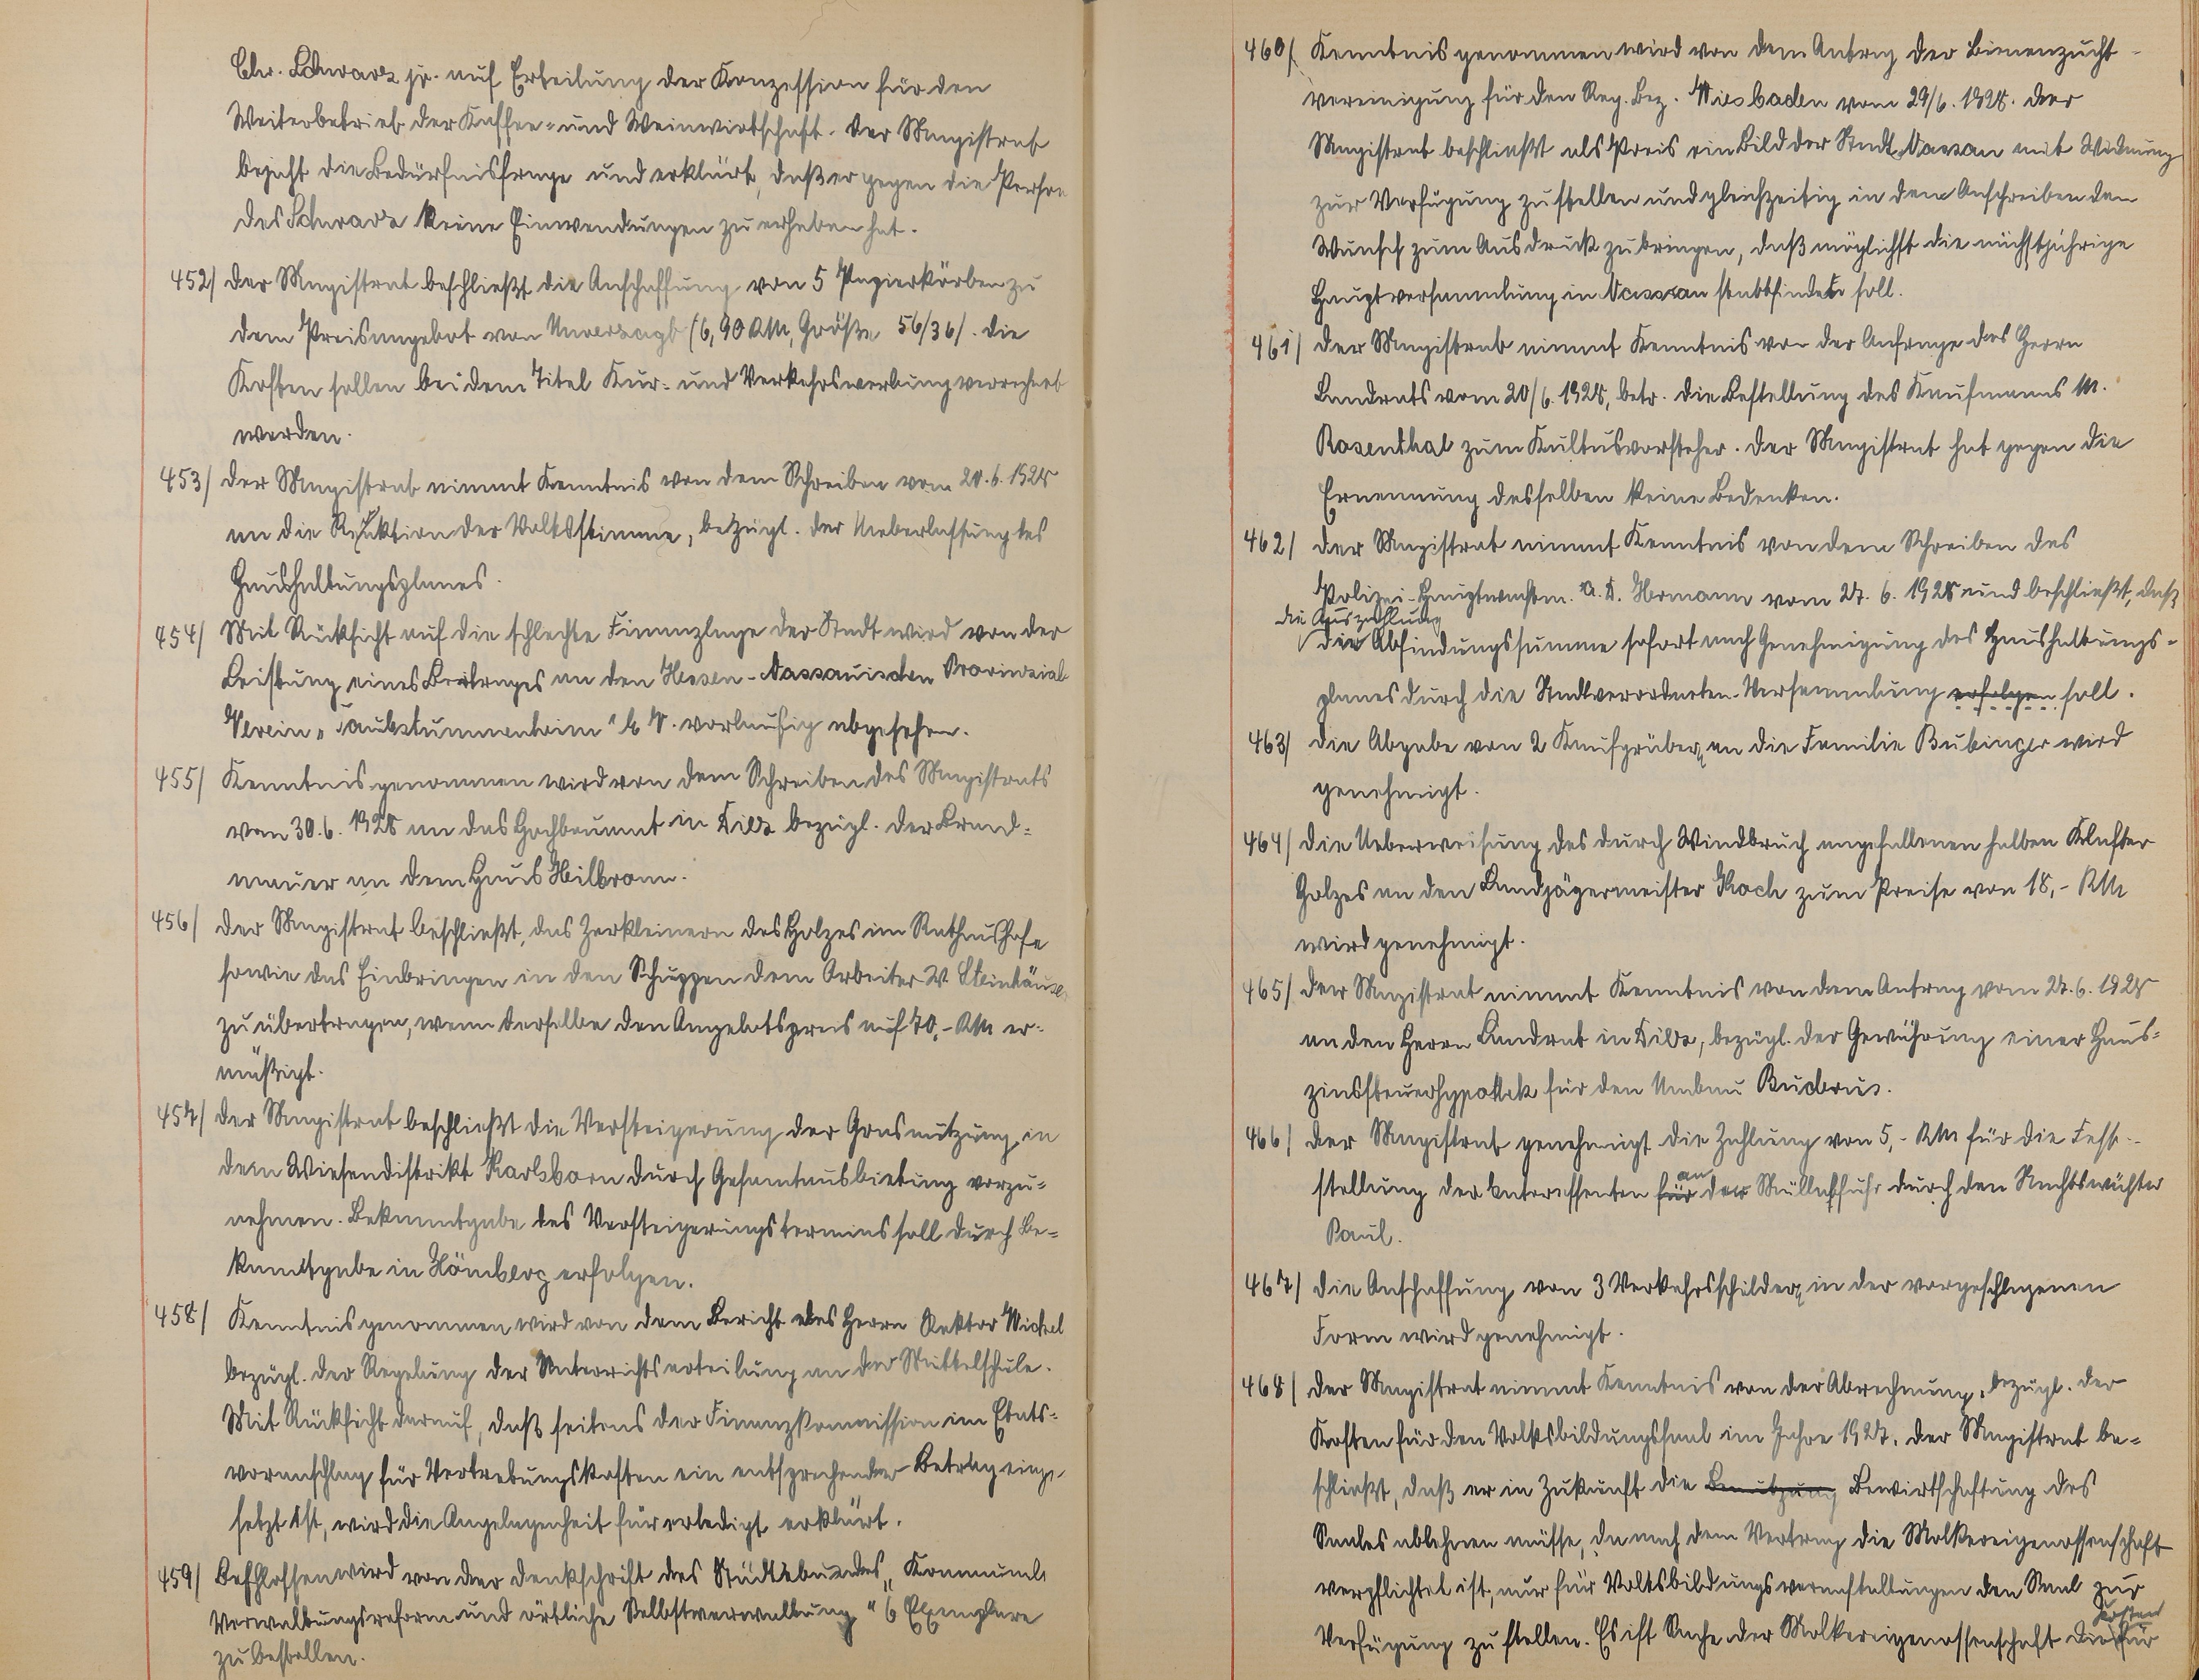 Chr. Schwarz jr. auf Erteilung der Konzession für den
Weiterbetrieb der Kaffee- und Weinwirtschaft. Der Magistrat
bejaht die Bedürfnisfrage und erklärt, daß er gegen die Person
des Schwarz keine Einwendungen zu erheben hat.
452/ Der Magistrat beschließt die Anschaffung von 5 Papierkörben zu
dem Preisangebot von Unverzagt (6,90 RM, Größe 56/36/. Die
Kosten sollen bei dem Titel Kur- und Verkehrswerbung verrechnet
werden.
453/ Der Magistrat nimmt Kenntnis von dem Schreiben vom 20.6.1928
an die Redaktion der Volksstimme, bezügl. der Ueberlassung des
Haushaltungsplanes.
454/ Mit Rücksicht auf die schlechte Finanzlage der Stadt wird von der
Leistung eines Beitrages an den Hessen-Nassauischen Provinzial
Verein „Taubstummenheim" E.V. vorläufig abgesehen.
455/ Kenntnis genommen wird von dem Schreiben des Magistrats
vom 30.6.1928 an das Hochbauamt in Diez bezügl. der Brand-
mauer an dem Haus Heilbronn.
456/ Der Magistrat beschließt, das Zerkleinern des Holzes im Rathaushofe
sowie das Einbringen in den Schuppen dem Arbeiter W. Steinhäuser
zu übertragen, wenn derselbe den Angebotspreis auf 70,- RM er-
mäßigt.
457/ Der Magistrat beschließt die Versteigerung der Grasnutzung in
dem Wiesendistrikt Karlsborn durch Gesamtausbietung vorzu-
nehmen. Bekanntgabe des Versteigerungstermins soll durch Be-
kanntgabe in Hömberg erfolgen.
458/ Kenntnis genommen wird von dem Bericht des Herrn Rektor Michel
bezügl. der Regelung der Unterrichtserteilung an der Mittelschule.
Mit Rücksicht darauf, daß seitens der Finanzkommission im Etats-
voranschlag für Vertretungskosten ein entsprechender Betrag einge-
setzt ist, wird die Angelegenheit für erledigt erklärt.
459/ Beschlossen wird von der Denkschrift des Städtebundes „Kommunale
Verwaltungsreform und örtliche Selbstverwaltung" 6 Exemplare
zu bestellen.
460/ Kenntnis genommen wird von dem Antrag der Bienenzucht-
vereinigung für den Reg. Bez. Wiesbaden vom 29/6.1928. Der
Magistrat beschließt als Preis ein Bild der Stadt Nassau mit Widmung
zur Verfügung zu stellen und gleichzeitig in dem Anschreiben den
Wunsch zum Ausdruck zu bringen, daß möglichst die nächstjährige
Hauptversammlung in Nassau stattfinden soll.
461/ Der Magistrat nimmt Kenntnis von der Anfrage des Herrn
Landrats vom 20/6.1928, betr. die Bestellung des Kaufmanns M.
Rosenthal zum Kultusvorsteher. Der Magistrat hat gegen die
Ernennung desselben keine Bedenken.
462/ Der Magistrat nimmt Kenntnis von dem Schreiben des
Polizei-Hauptwachtm. a.D. Hermann vom 27.6.1928 und beschließt, daß
die Auszahlung
der Abfindungssumme sofort nach Genehmigung des Haushaltungs-
planes durch die Stadtverordneten-Versammlung erfolgen soll.
463/ Die Abgabe von 2 Kaufgräber an die Familie Bubinger wird
genehmigt.
464/ Die Ueberweisung des durch Windbruch angefallenen halben Klafter
Holzes an den Landjägermeister Koch zum Preise von 18,- RM
wird genehmigt.
465/ Der Magistrat nimmt Kenntnis von dem Antrag vom 27.6.1928
an den Herrn Landrat in Diez, bezügl. der Gewährung einer Haus-
zinssteuerhypothek für den Umbau Buderus.
466/ Der Magistrat genehmigt die Zahlung von 5,- RM für die Fest-
an
stellung der Interessenten für der Müllabfuhr durch den Nachtswächter
Paul.
467/ Die Anschaffung von 3 Verkehrsschilder in der vorgeschlagenen
Form wird genehmigt.
468/ Der Magistrat nimmt Kenntnis von der Abrechnung, bezügl. der
Kosten für den Volksbildungssaal im Jahre 1927. Der Magistrat be-
schließt, daß er in Zukunft die Benutzung Bewirtschaftung des
Saales ablehnen müsse, da nach dem Vertrag die Molkereigenossenschaft
verpflichtet ist, nur für Volksbildungsveranstaltungen den Saal zur
Kosten
Verfügung zu stellen. Es ist Sache der Molkereigenossenschaft die für